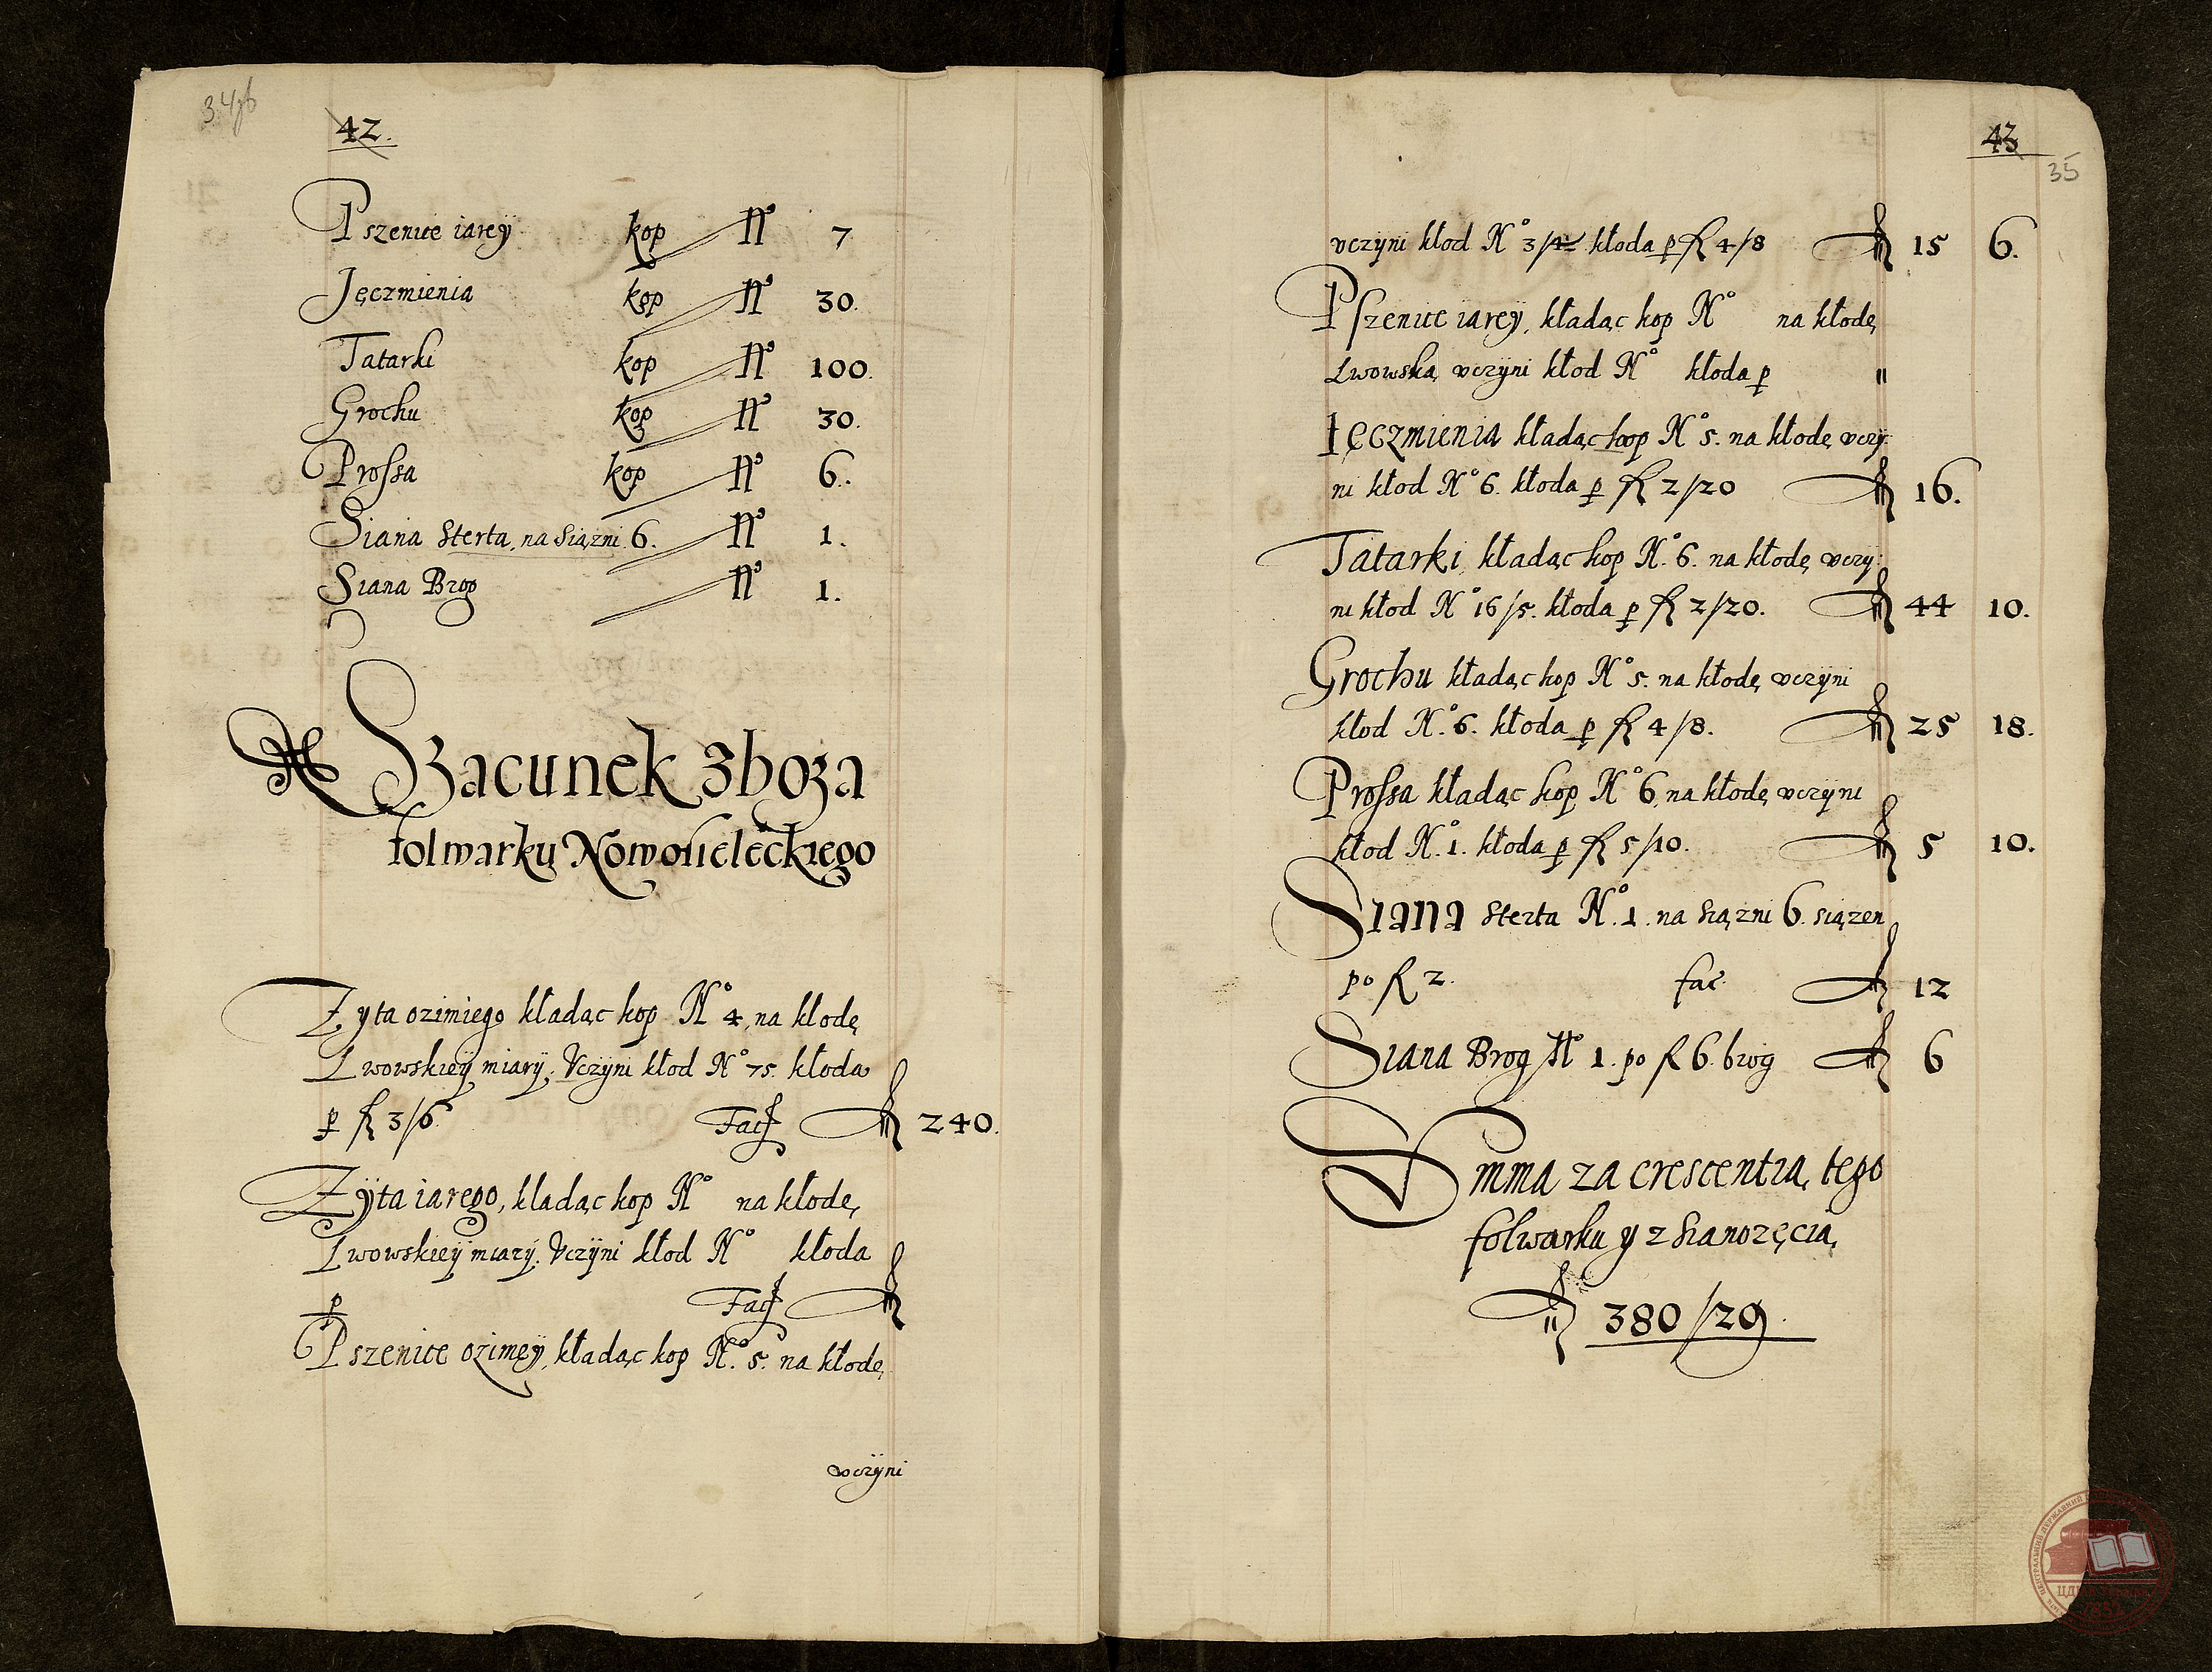 34v
42.
Pszenice iarey kop Nº 7
Jęczmienia kop Nº 30.
Tatarki kop Nº 100.
Grochu kop Nº 30.
Prossa kop Nº 6.
Siana Sterta, na Siązni 6. Nº 1.
Siana Brog Nº 1.
Szacunek Zboza
folwarku Nowosieleckiego
Zyta ozimiego kładąc kop Nº 4, na kłodę
Lwowskieÿ miarÿ. Vczÿni kłod Nº 75. kłoda
p fl 3/6. Facit fl 240.
Zÿta iarego, kładąc kop Nº na kłodę
Lwowskieÿ miarÿ. Vczÿni kłod Nº kłoda
p Facit fl
Pszenice ozimeÿ, kładąc kop Nº. 5. na kłodę
vczÿni
43
35
vczÿni kłod Nº 3/4 kłoda p fl 4/8 fl 15 6.
Pszenice iareÿ, kładąc kop Nº na kłodę
Lwowską vczÿni kłod Nº kłoda p "
Ięczmienia kładąc kop Nº 5. na kłodę vczÿ:
ni kłod Nº 6. kłoda p fl 2/20 fl 16.
Tatarki, kładąc kop Nº. 6. na kłodę vczÿ:
ni kłod Nº 16/5. kłoda p fl 2/20. fl 44 10.
Grochu kładąc kop Nº 5. na kłodę vczÿni
kłod Nº. 6. kłoda p fl 4/8. fl 25 18.
Prossa kładąc kop Nº 6, na kłodę vczÿni
kłod Nº. 1. kłoda p fl 5/10. fl 5 10.
Siana Sterta Nº. 1. na Siązni 6. siązen
po fl 2. fac. fl 12
Siana Brog Nº 1. po fl 6. brog fl 6
Summa za crescentią tego
folwarku y z Sianozęcią
fl 380/29.